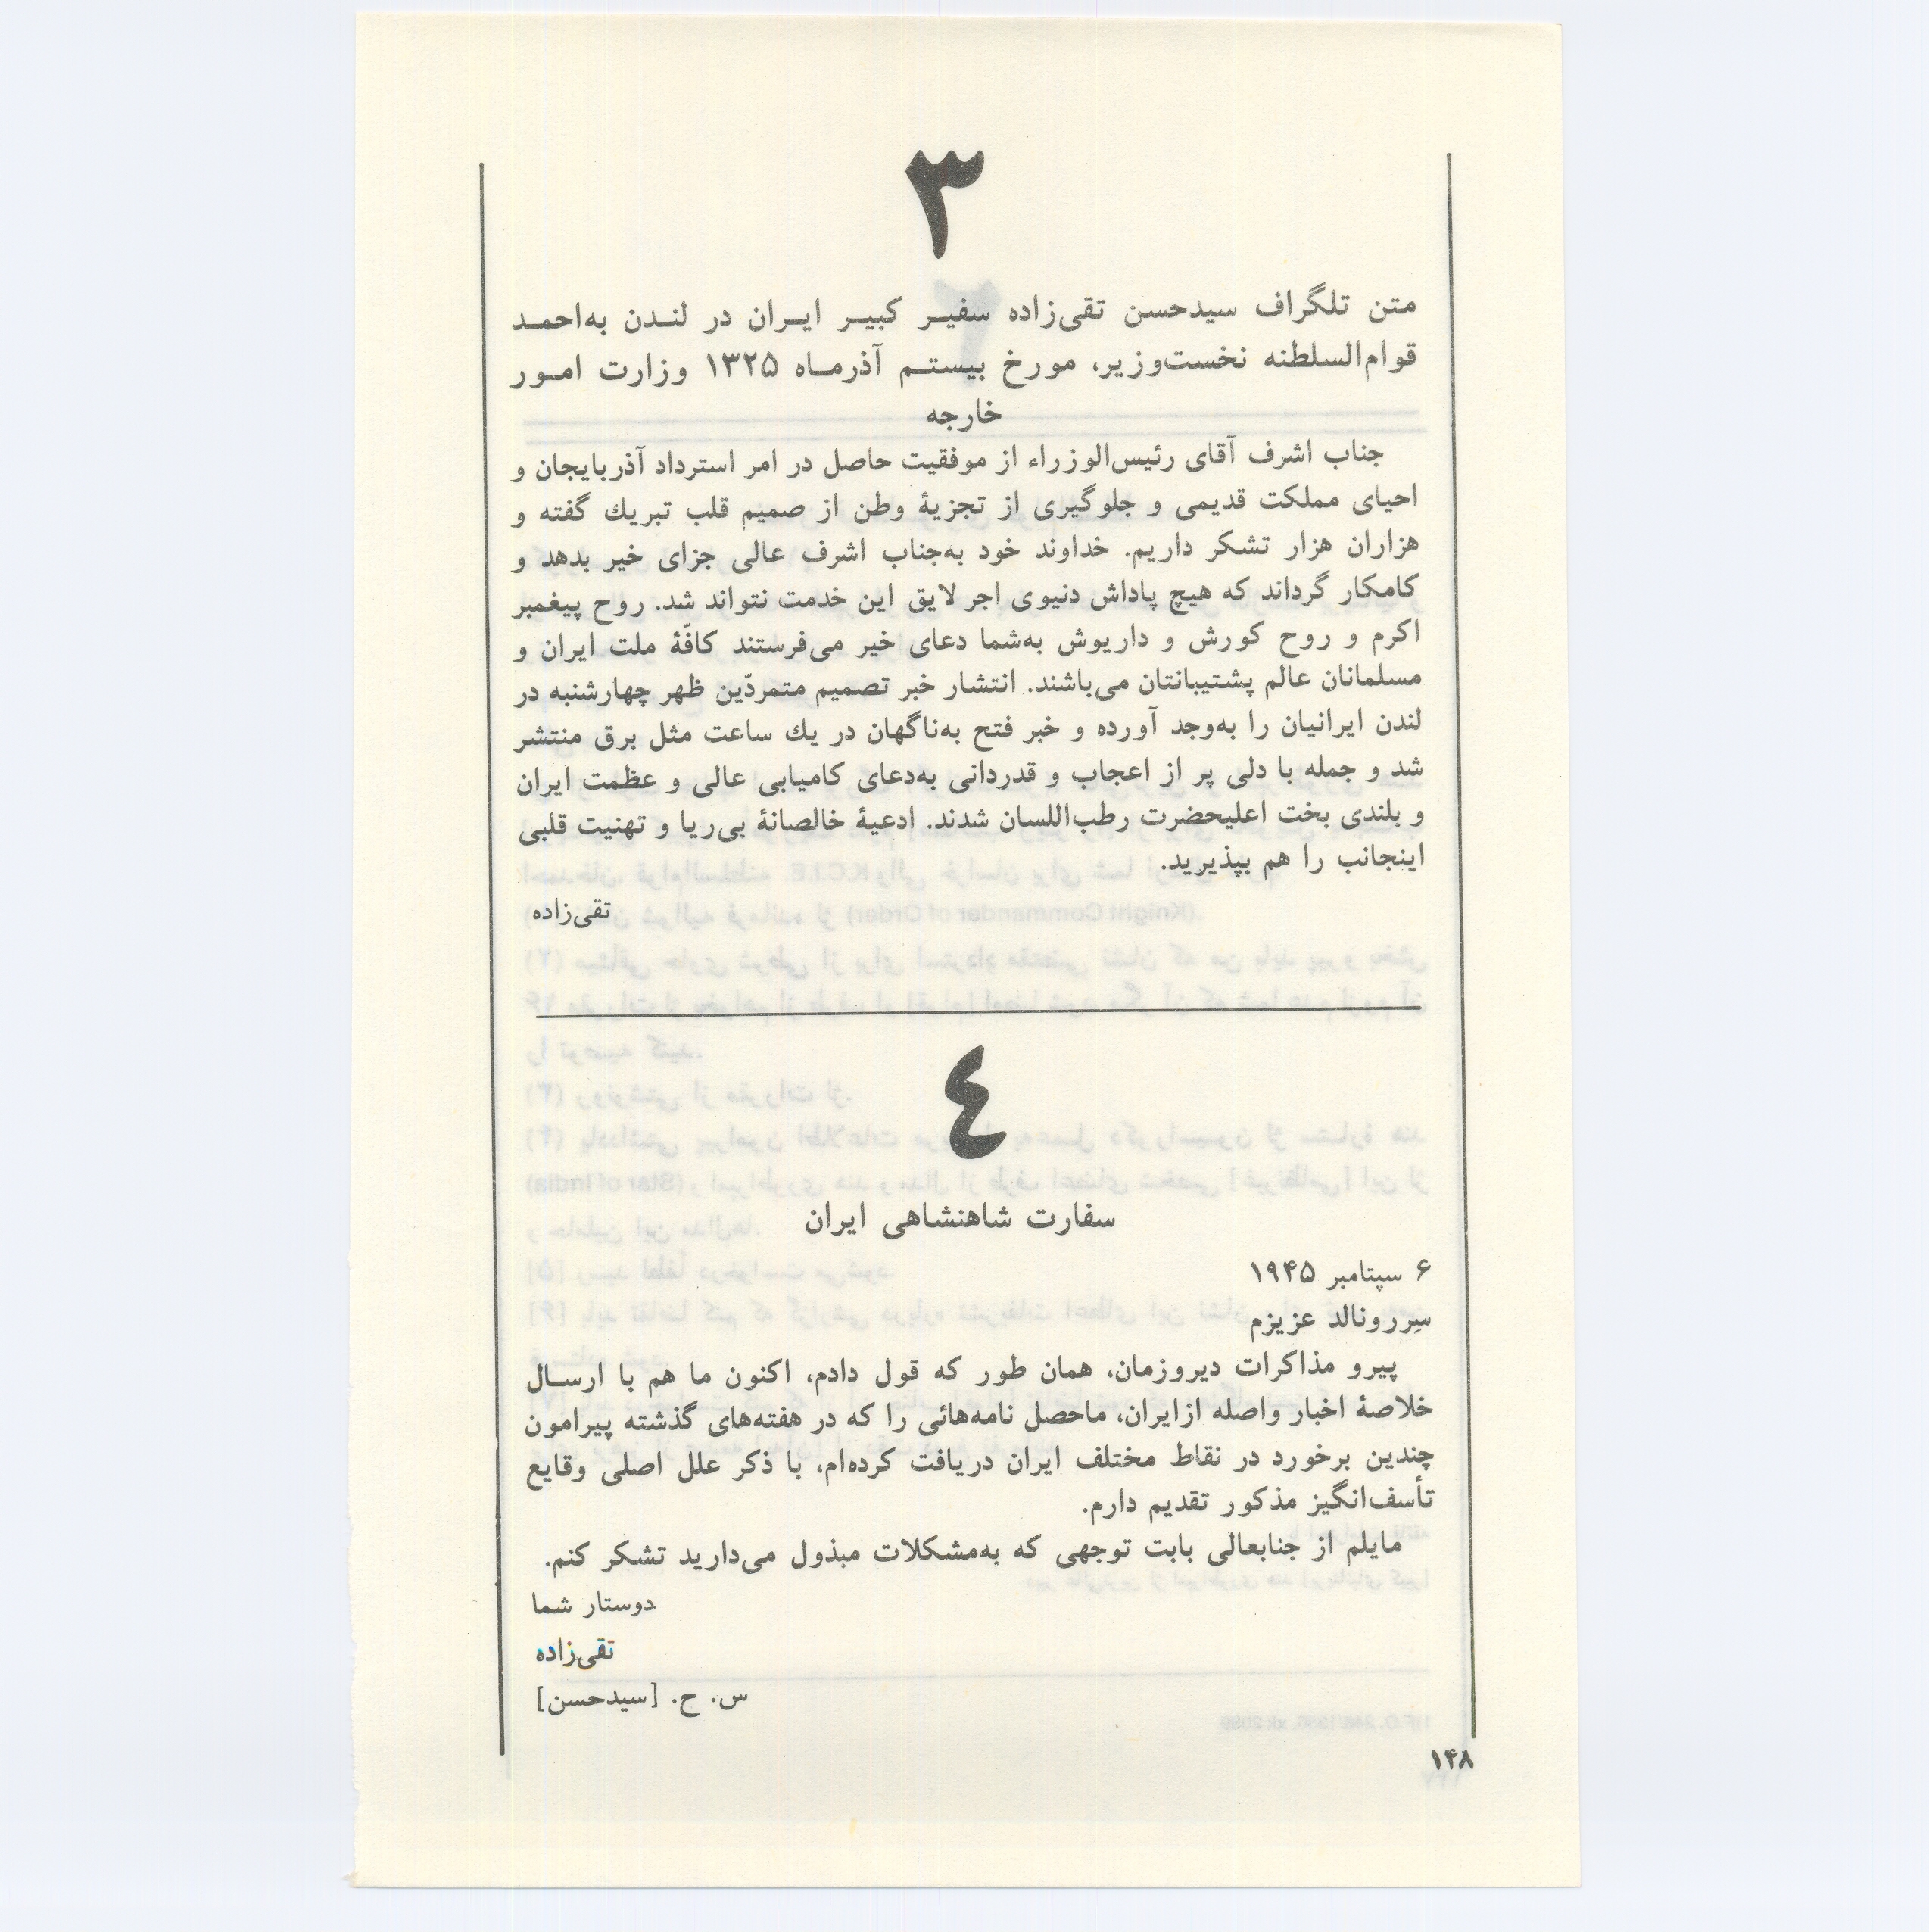 ۳
متن تلگراف سیدحسن تقی‌زاده سفیر کبیر ایران در لندن به‌احمد
قوام‌السلطنه نخست‌وزیر، مورخ بیستم آذرماه ۱۳۲۵ وزارت امور
خارجه
جناب اشرف آقای رئیس‌الوزراء از موفقیت حاصل در امر استرداد آذربایجان و
احیای مملکت قدیمی و جلوگیری از تجزیهٔ وطن از صمیم قلب تبریك گفته و
هزاران هزار تشکر داریم. خداوند خود به‌جناب اشرف عالی جزای خیر بدهد و
کامکار گرداند که هیچ پاداش دنیوی اجر لایق این خدمت نتواند شد. روح پیغمبر
اکرم و روح کورش و داریوش به‌شما دعای خیر می‌فرستند کافّهٔ ملت ایران و
مسلمانان عالم پشتیبانتان می‌باشند. انتشار خبر تصمیم متمردّین ظهر چهارشنبه در
لندن ایرانیان را به‌وجد آورده و خبر فتح به‌ناگهان در یك ساعت مثل برق منتشر
شد و جمله با دلی پر از اعجاب و قدردانی به‌دعای کامیابی عالی و عظمت ایران
و بلندی بخت اعلیحضرت رطب‌اللسان شدند. ادعیهٔ خالصانهٔ بی‌ریا و تهنیت قلبی
اینجانب را هم بپذیرید.
تقی‌زاده
٤
سفارت شاهنشاهی ایران
۶ سپتامبر ۱۹۴۵
سِررونالد عزیزم
پیرو مذاکرات دیروزمان، همان طور که قول دادم، اکنون ما هم با ارسال
خلاصهٔ اخبار واصله ازایران، ماحصل نامه‌هائی را که در هفته‌های گذشته پیرامون
چندین برخورد در نقاط مختلف ایران دریافت کرده‌ام، با ذکر علل اصلی وقایع
تأسف‌انگیز مذکور تقدیم دارم.
مایلم از جنابعالی بابت توجهی که به‌مشکلات مبذول می‌دارید تشکر کنم.
دوستار شما
تقی‌زاده
س. ح. [سیدحسن]
۱۴۸